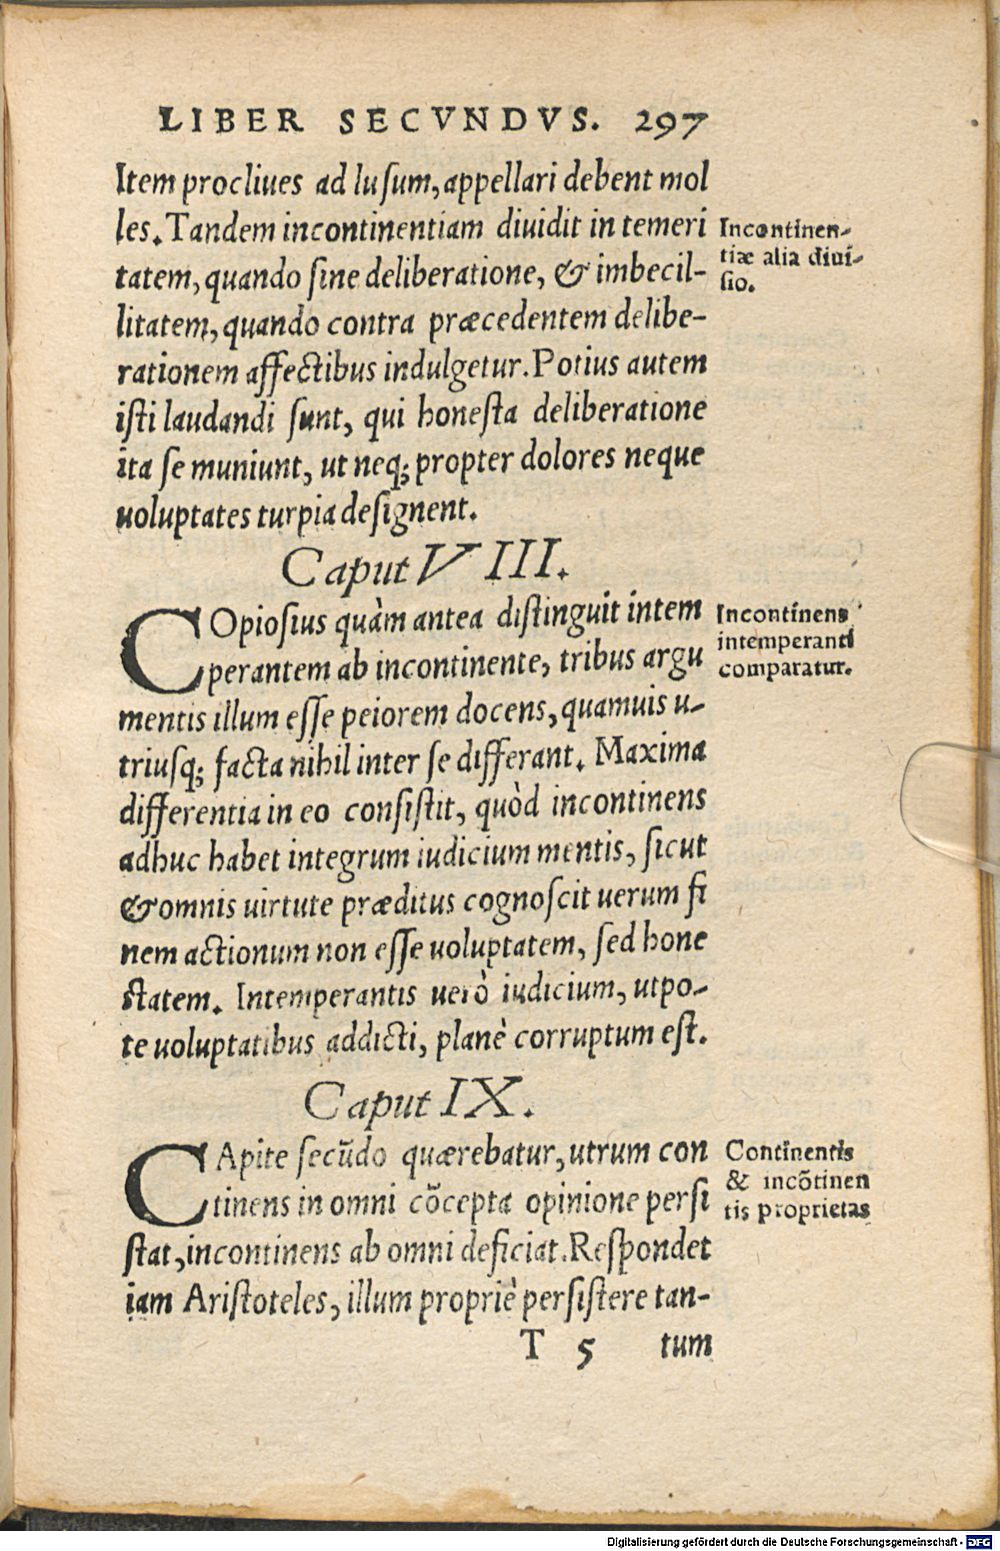 LIBER SECVNDVS. 297
Item procliues ad lusum, appellari debent mol
les. Tandem incontinentiam diuidit in temeri
tatem, quando sine deliberatione, & imbecil-
litatem, quando contra præcedentem delibe-
rationem affectibus indulgetur. Potius autem
isti laudandi sunt, qui honesta deliberatione
ita se muniunt, ut neq; propter dolores neque
uoluptates turpia designent.
Incontinen-
tiæ alia diui-
sio.
Caput VIII.
COpiosius quàm antea distinguit intem
perantem ab incontinente, tribus argu
mentis illum esse peiorem docens, quamuis u-
triusq; facta nihil inter se differant. Maxima
differentia in eo consistit, quòd incontinens
adhuc habet integrum iudicium mentis, sicut
& omnis uirtute præditus cognoscit uerum fi
nem actionum non esse uoluptatem, sed hone
statem. Intemperantis uerò iudicium, utpo-
te uoluptatibus addicti, planè corruptum est.
Incontinens
intemperanti
comparatur.
Caput IX.
CApite secũdo quærebatur, utrum con
tinens in omni cõcepta opinione persi
stat, incontinens ab omni deficiat. Respondet
iam Aristoteles, illum propriè persistere tan-
Continentis
& incõtinen
tis proprietas
T 5 tum
Digitalisierung gefördert durch die Deutsche Forschungsgemeinschaft - DFG